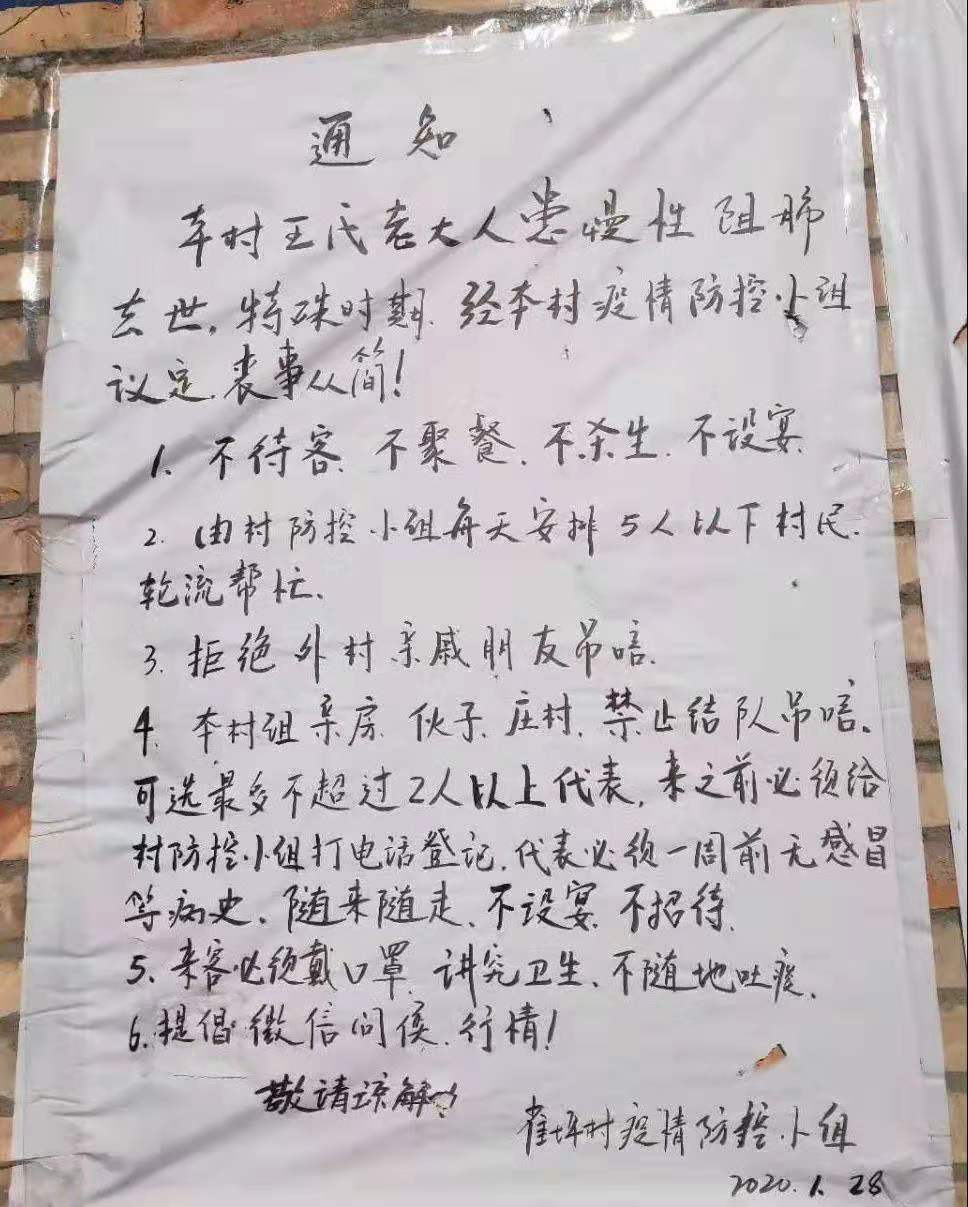 通知
本村王氏老大人患慢性阻肺
去世，特殊时期，经本村疫情防控小组
议定，丧事从简！
1、不待客、不聚餐、不杀生、不设宴
2、由村防控小组每天安排5人以下村民，
轮流帮忙、
3、拒绝外村亲戚朋友吊唁、
4、本村组亲房、伙子、庄村、禁止结队吊唁。
可选最多不超过2人以上代表，来之前必须给
村防控小组打电话登记，代表必须一周前无感冒
等病史、随来随走、不设宴、不招待、
5、来客必须戴口罩、讲究卫生、不随地吐痰、
6、提倡微信问侯、行情！
敬请谅解
崔坪村疫情防控小组
2020.1.28